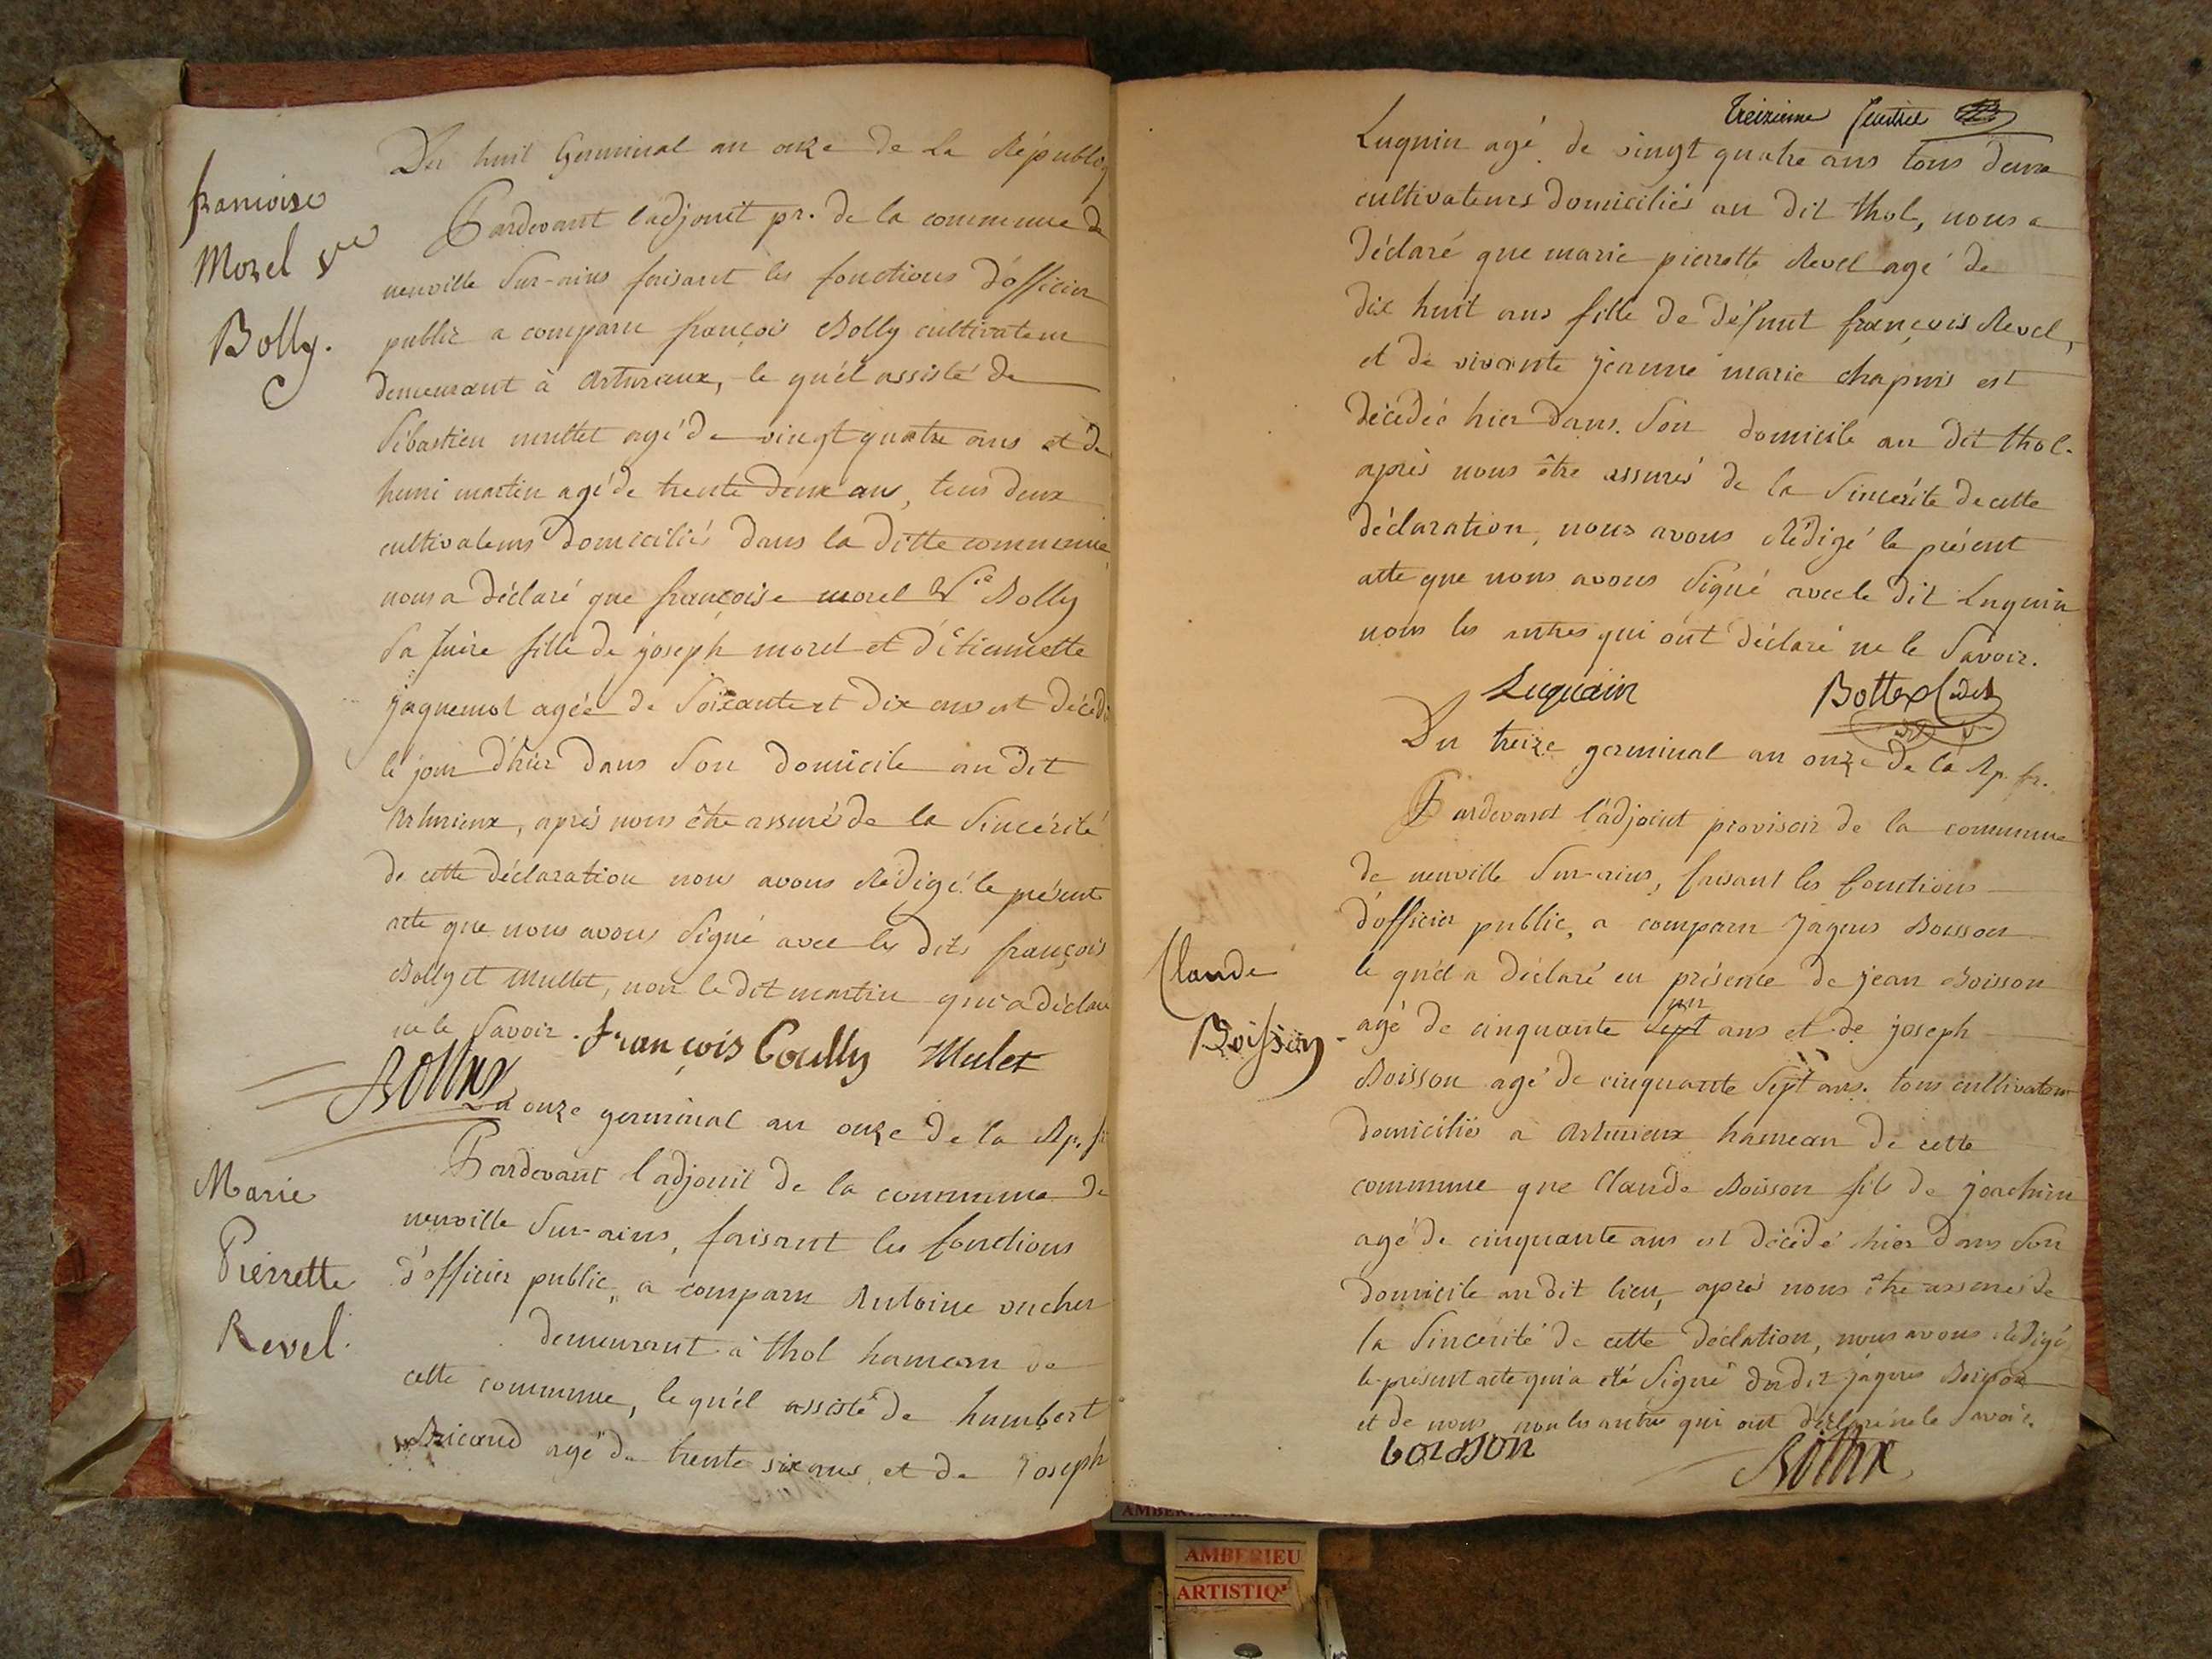 françoise
Morel Vve
Bolly.
Du huit Germinal an onze de La Républq
Pardevant l'adjoint pr. de la commune de
neuville Sur-ains faisant les fonctions d'officier
public a comparu françois Bolly cultivateur
demeurant à Arturieux, le quél assisté de
Sébastien mullet agé de vingt quatre ans et de
henri martin agé de trente deux ans, tous deux
cultivateurs domiciliés dans la ditte commune,
nous a déclaré que françoise morel Ve Bolly
Sa mère fille de joseph morel et d'étiennette
jaquemot agée de Soixante et dix ans est décédé
le jour d'hier dans Son domicile au dit
Arturieux, après nous être assurés de la Sincérité
de cette déclaration nous avons Rédigé le présent
acte que nous avons Signé avec les dits françois
Bolly et Mullet, non le dit martin qui a déclaré
ne le Savoir. françois Boully Mulet
Bottex
Du onze germinal an onze de la Rp. fr
Marie
Pierrette
Revel.
Pardevant l'adjoint de la commune de
neuville Sur-ains, faisant les fonctions
d'officier public, a comparu Antoine vucher
demeurant à thol hameau de
cette commune, le quél assisté de humbert
Bricaud agé de trente six ans, et de Joseph
treizieme feuillet
Luquin agé de vingt quatre ans tous deux
cultivateurs domiciliés au dit thol, nous a
déclaré que marie pierrette Revel agé de
dix huit ans fille de défunt françois Revel,
et de vivante jeanne marie chapuis est
décédée hier dans Son domicile au dit thol.
après nous être assurés de la Sincérité de cette
déclaration, nous avons Rédigé le présent
acte que nous avons Signé avec le dit Luquin
non les autres qui ont déclaré ne le Savoir.
Luquain Bottex Cadet
Du treize germinal an onze de la Rp. fr.
Pardevant l'adjoint provisoir de la commune
de neuville Sur-ains, faisant les fonctions
d'officier public, a comparu Jaques Boisson
Claude
Boisson
le quél a déclaré en présence de jean Boisson
agé de cinquante Sept un ans et de joseph
Boisson agé de cinquante Sept ans. tous cultivateurs
domiciliés a Arturieux hameau de cette
commune que Claude Boisson fils de joachim
agé de cinquante ans est décédé hier dans Son
domicile au dit lieu, après nous être assurés de
la Sincérité de cette déclation, nous avons Rédigé
le présent acte qui a été Signé du dit jaques Boisson
et de nous non les autres qui ont déclaré ne le Savoir.
boisson Bottex
AMBERIEU
ARTISTIQ